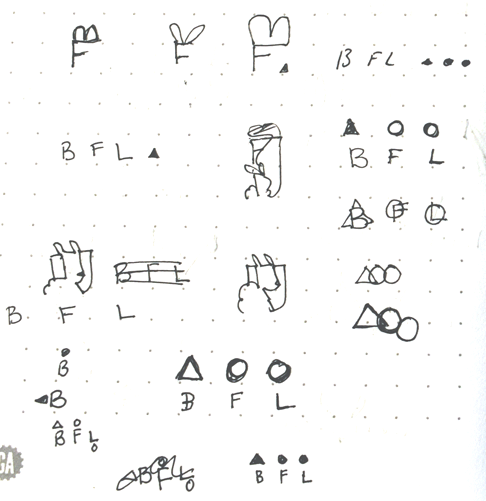 FB
F
FB
B FL
B F L
B F L
F
B F L
B F L
B F L
B
B F L
B
B F L
B F L
B F L
GA